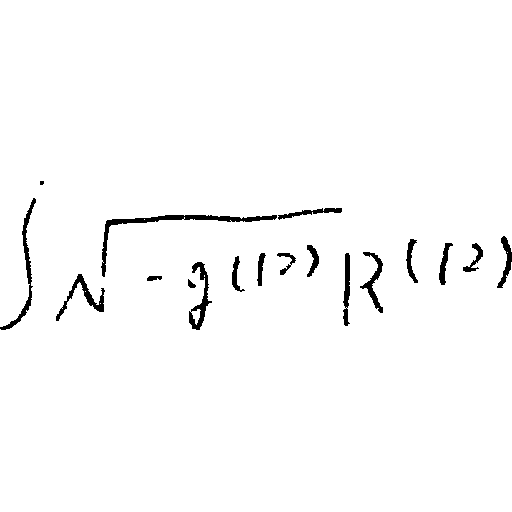 ∫√-g(12) R(12)